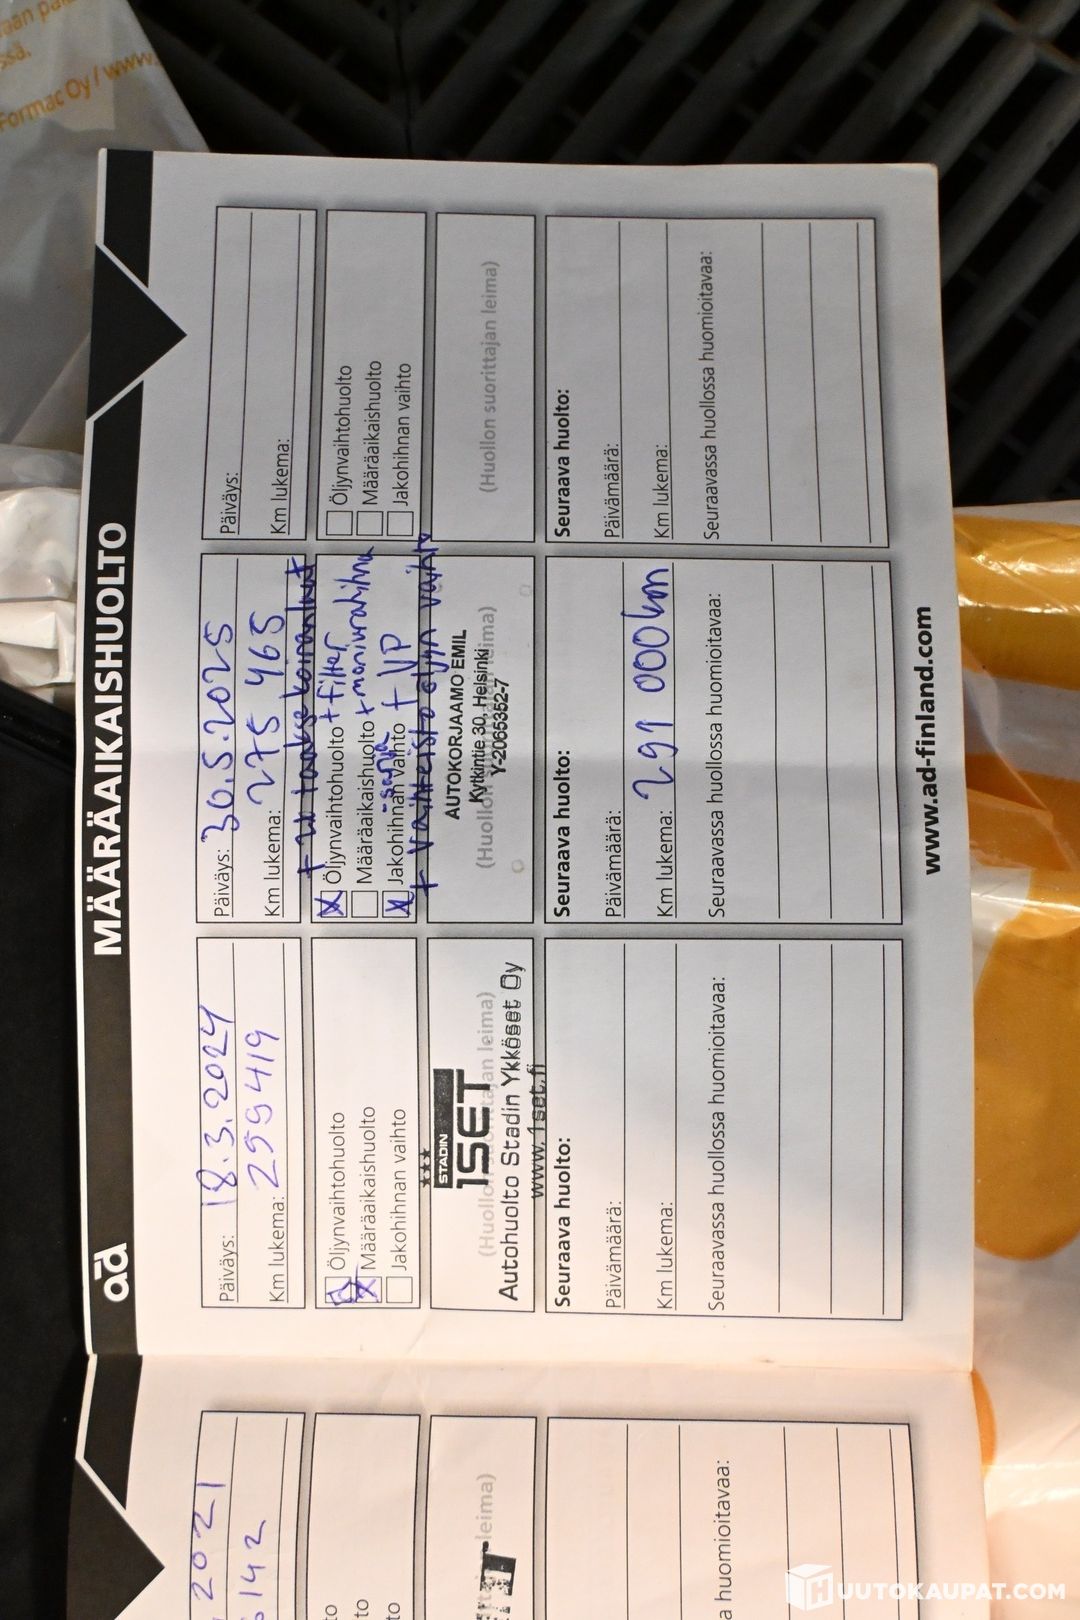 aan
ssä.
Formac Oy / www.
ad MÄÄRÄAIKAISHUOLTO
2021
142
(Huollon suorittajan leima)
a huomioitavaa:
Päiväys: 18.3.2024
Km lukema: 259419
Öljynvaihtohuolto
Määräaikaishuolto
Jakohihnan vaihto
(Huollon suorittajan leima)
STADIN
1SET
Autohuolto Stadin Ykköset Oy
www.1set.fi
Seuraava huolto:
Päivämäärä:
Km lukema:
Seuraavassa huollossa huomioitavaa:
Päiväys: 30.5.2025
Km lukema: 275 465
Öljynvaihtohuolto + filter
Määräaikaishuolto + moniurahihna
Jakohihnan vaihto + VP
-sarja
+ vaihteisto öljyn vaihto
(Huollon suorittajan leima)
AUTOKORJAAMO EMIL
Kytkintie 30, Helsinki
Y-2065352-7
Seuraava huolto:
Päivämäärä:
Km lukema: 291 000km
Seuraavassa huollossa huomioitavaa:
Päiväys:
Km lukema:
Öljynvaihtohuolto
Määräaikaishuolto
Jakohihnan vaihto
(Huollon suorittajan leima)
Seuraava huolto:
Päivämäärä:
Km lukema:
Seuraavassa huollossa huomioitavaa:
www.ad-finland.com
HUUTOKAUPAT.COM